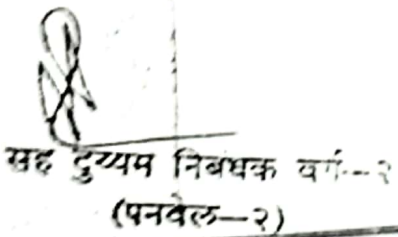 सह दुय्यम निबंधक वर्ग--२
(पनवेल—२)